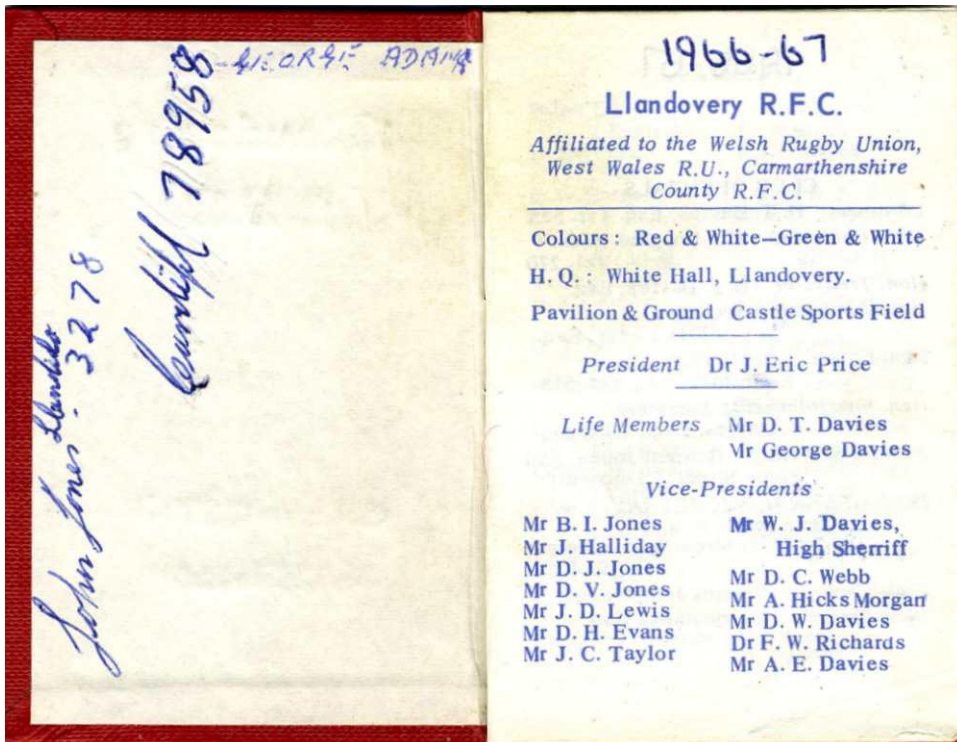 GEORGE
78958
John Jones
3278
1966-67
Llandovery R.F.C.
Affiliated to the Welsh Rugby Union,
West Wales R.U., Carmarthenshire
County R.F.C.
Colours : Red & White–Green & White
H.Q. : White Hall, Llandovery.
Pavilion & Ground Castle Sports Field
President Dr J. Eric Price
Life Members Mr D. T. Davies
Mr George Davies
Vice-Presidents
Mr B. I. Jones
Mr J. Halliday
Mr D. J. Jones
Mr D. V. Jones
Mr J. D. Lewis
Mr D. H. Evans
Mr J. C. Taylor
Mr W. J. Davies,
High Sherriff
Mr D. C. Webb
Mr A. Hicks Morgan
Mr D. W. Davies
Dr F. W. Richards
Mr A. E. Davies